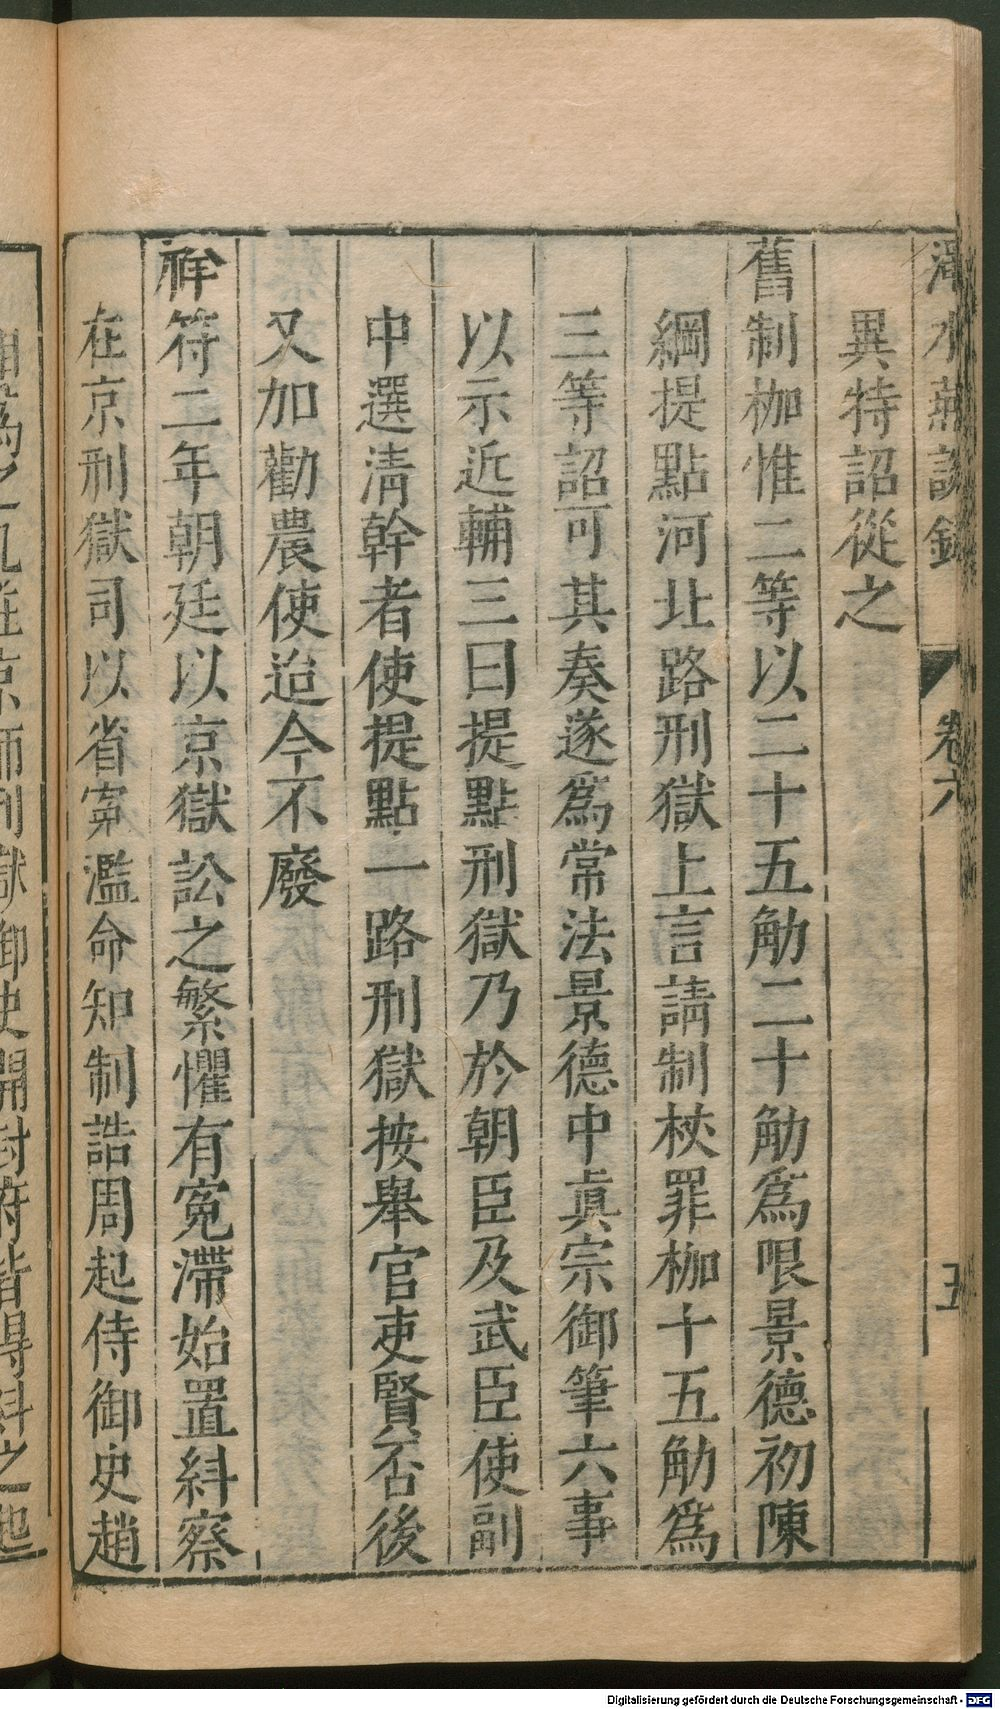 澠水燕談錄 卷六 五
異特詔從之
舊制枷惟二等以二十五觔二十觔爲限景德初陳
綱提點河北路刑獄上言請制杖罪枷十五觔爲
三等詔可其奏遂爲常法景德中眞宗御筆六事
以示近輔三曰提點刑獄乃於朝臣及武臣使副
中選清幹者使提點一路刑獄按舉官吏賢否後
又加勸農使迨今不廢
祥符二年朝廷以京獄訟之繁懼有寃滯始置糾察
在京刑獄司以省寃濫命知制誥周起侍御史趙
之凡在京師刑獄御史開封府皆得糾之起
Digitalisierung gefördert durch die Deutsche Forschungsgemeinschaft - DFG